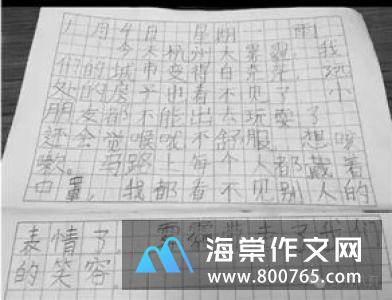 月4日 星期一 雨
今天杭州大雾霾,我
们的城市变得白茫茫,远
处的房子也看不见了。小
朋友都不能出去玩耍了
还会觉喉咙不舒服,想咳
嗽。马路上每个人都戴着
口罩,我都看不见别人的
表情了。雾霾带走了我们
的笑容
海棠作文网
www.800765.com